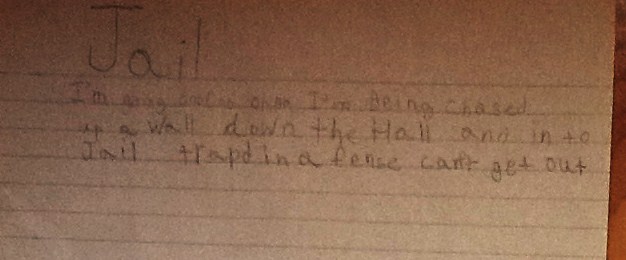 Jail
I'm being chased
up a wall down the Hall and in to
Jail trapd in a fense can't get out